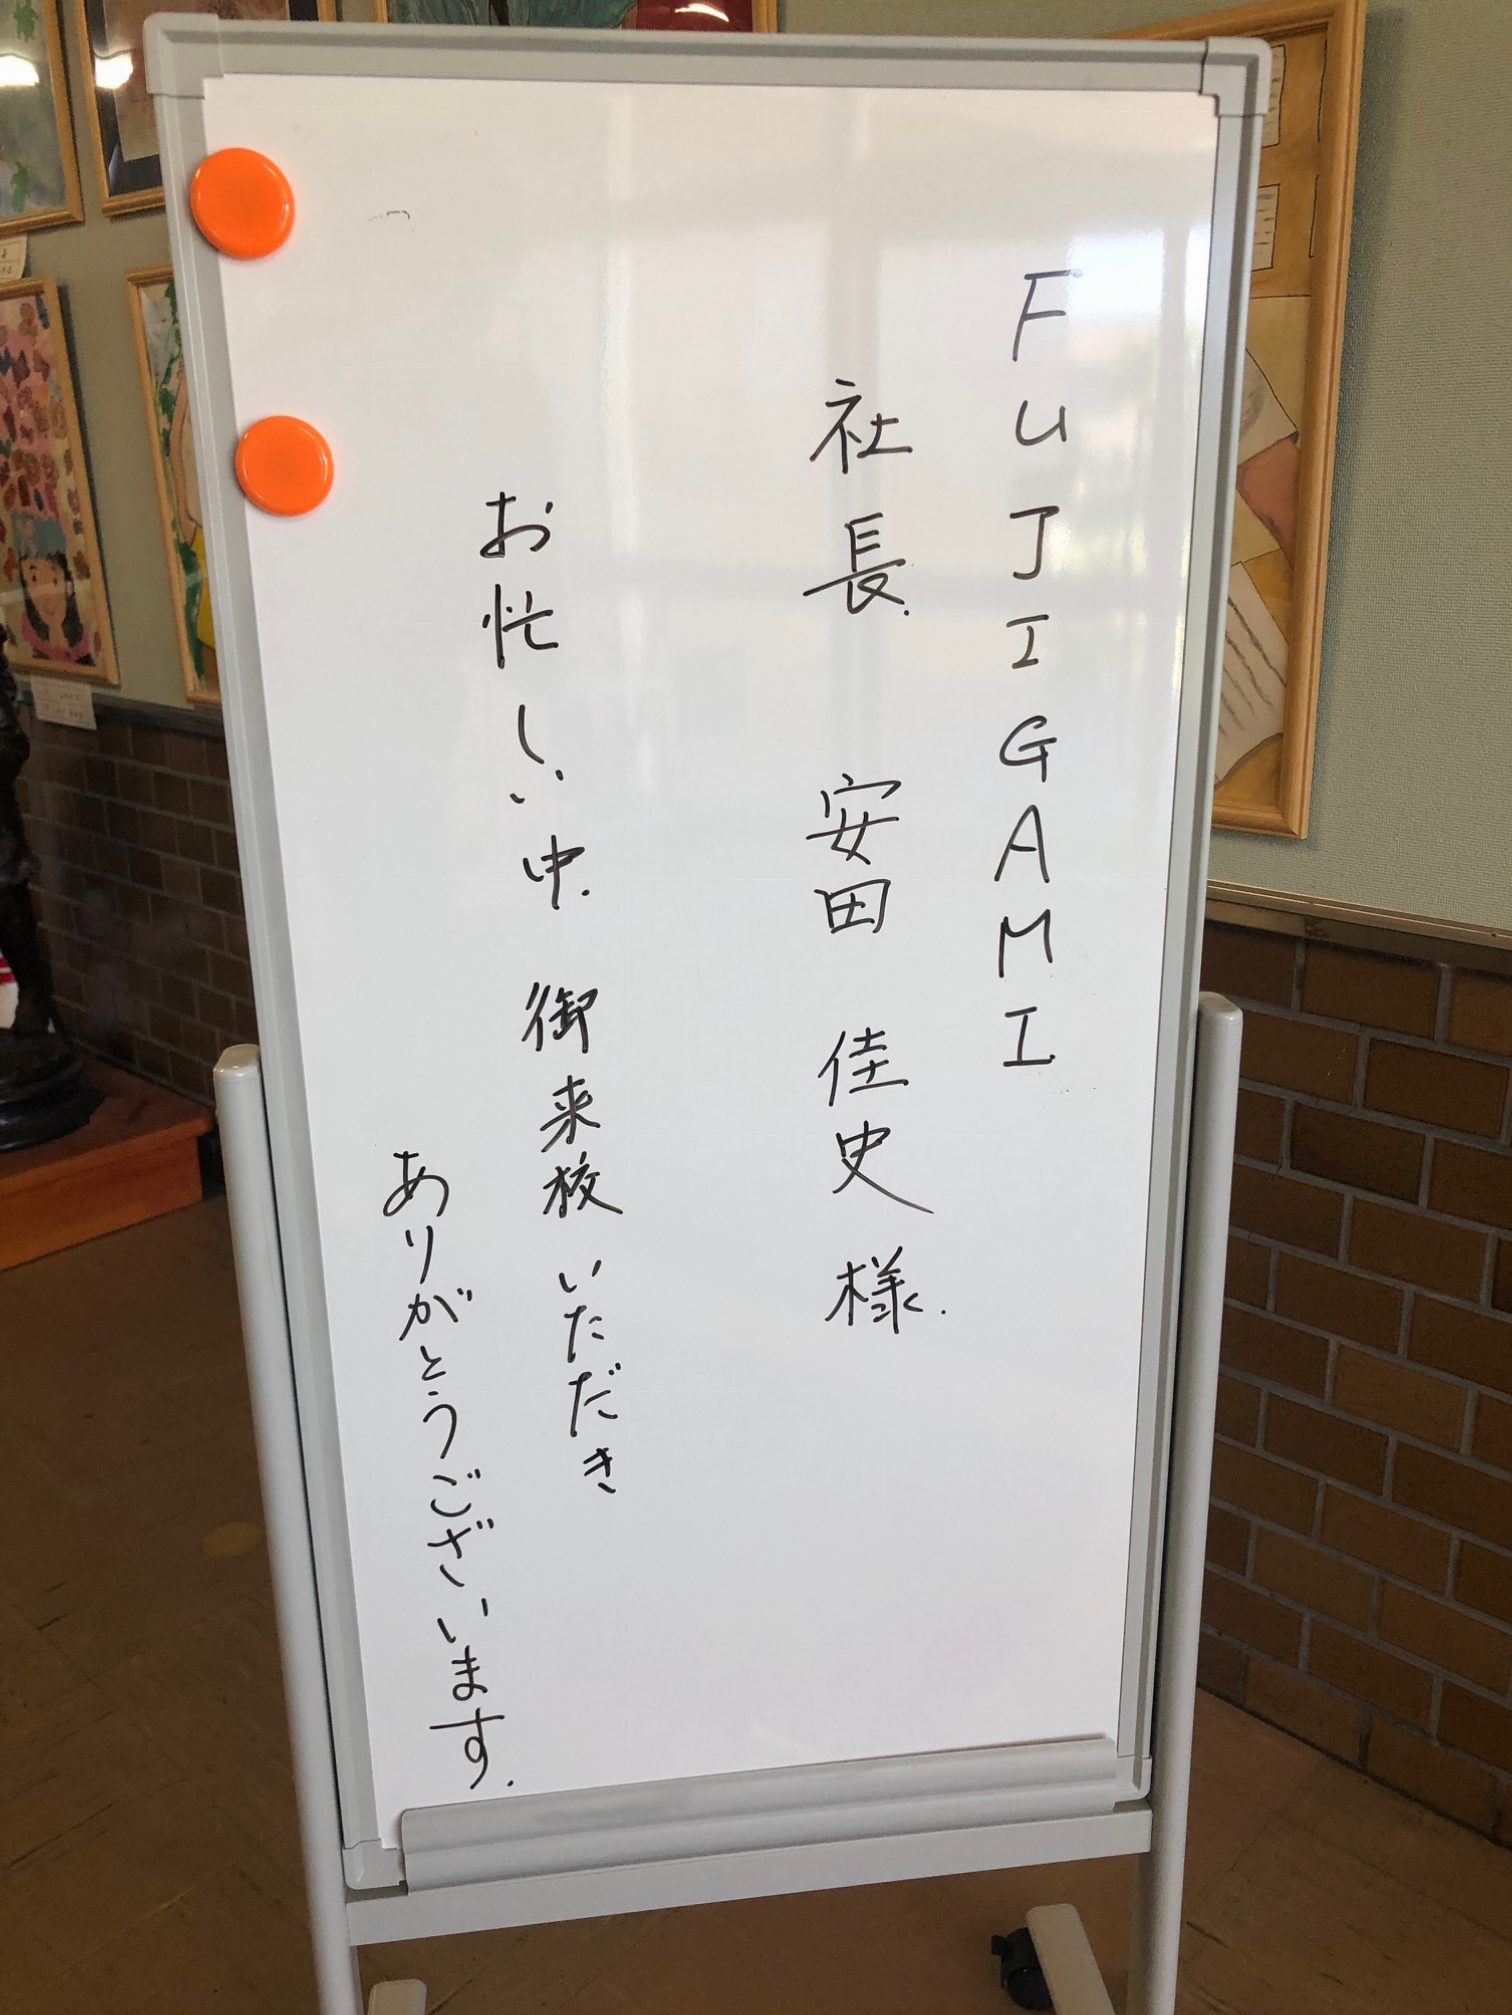 FUJIGAMI
社長 安田 佳史 様
お忙しい中 御来校いただき
ありがとうございます